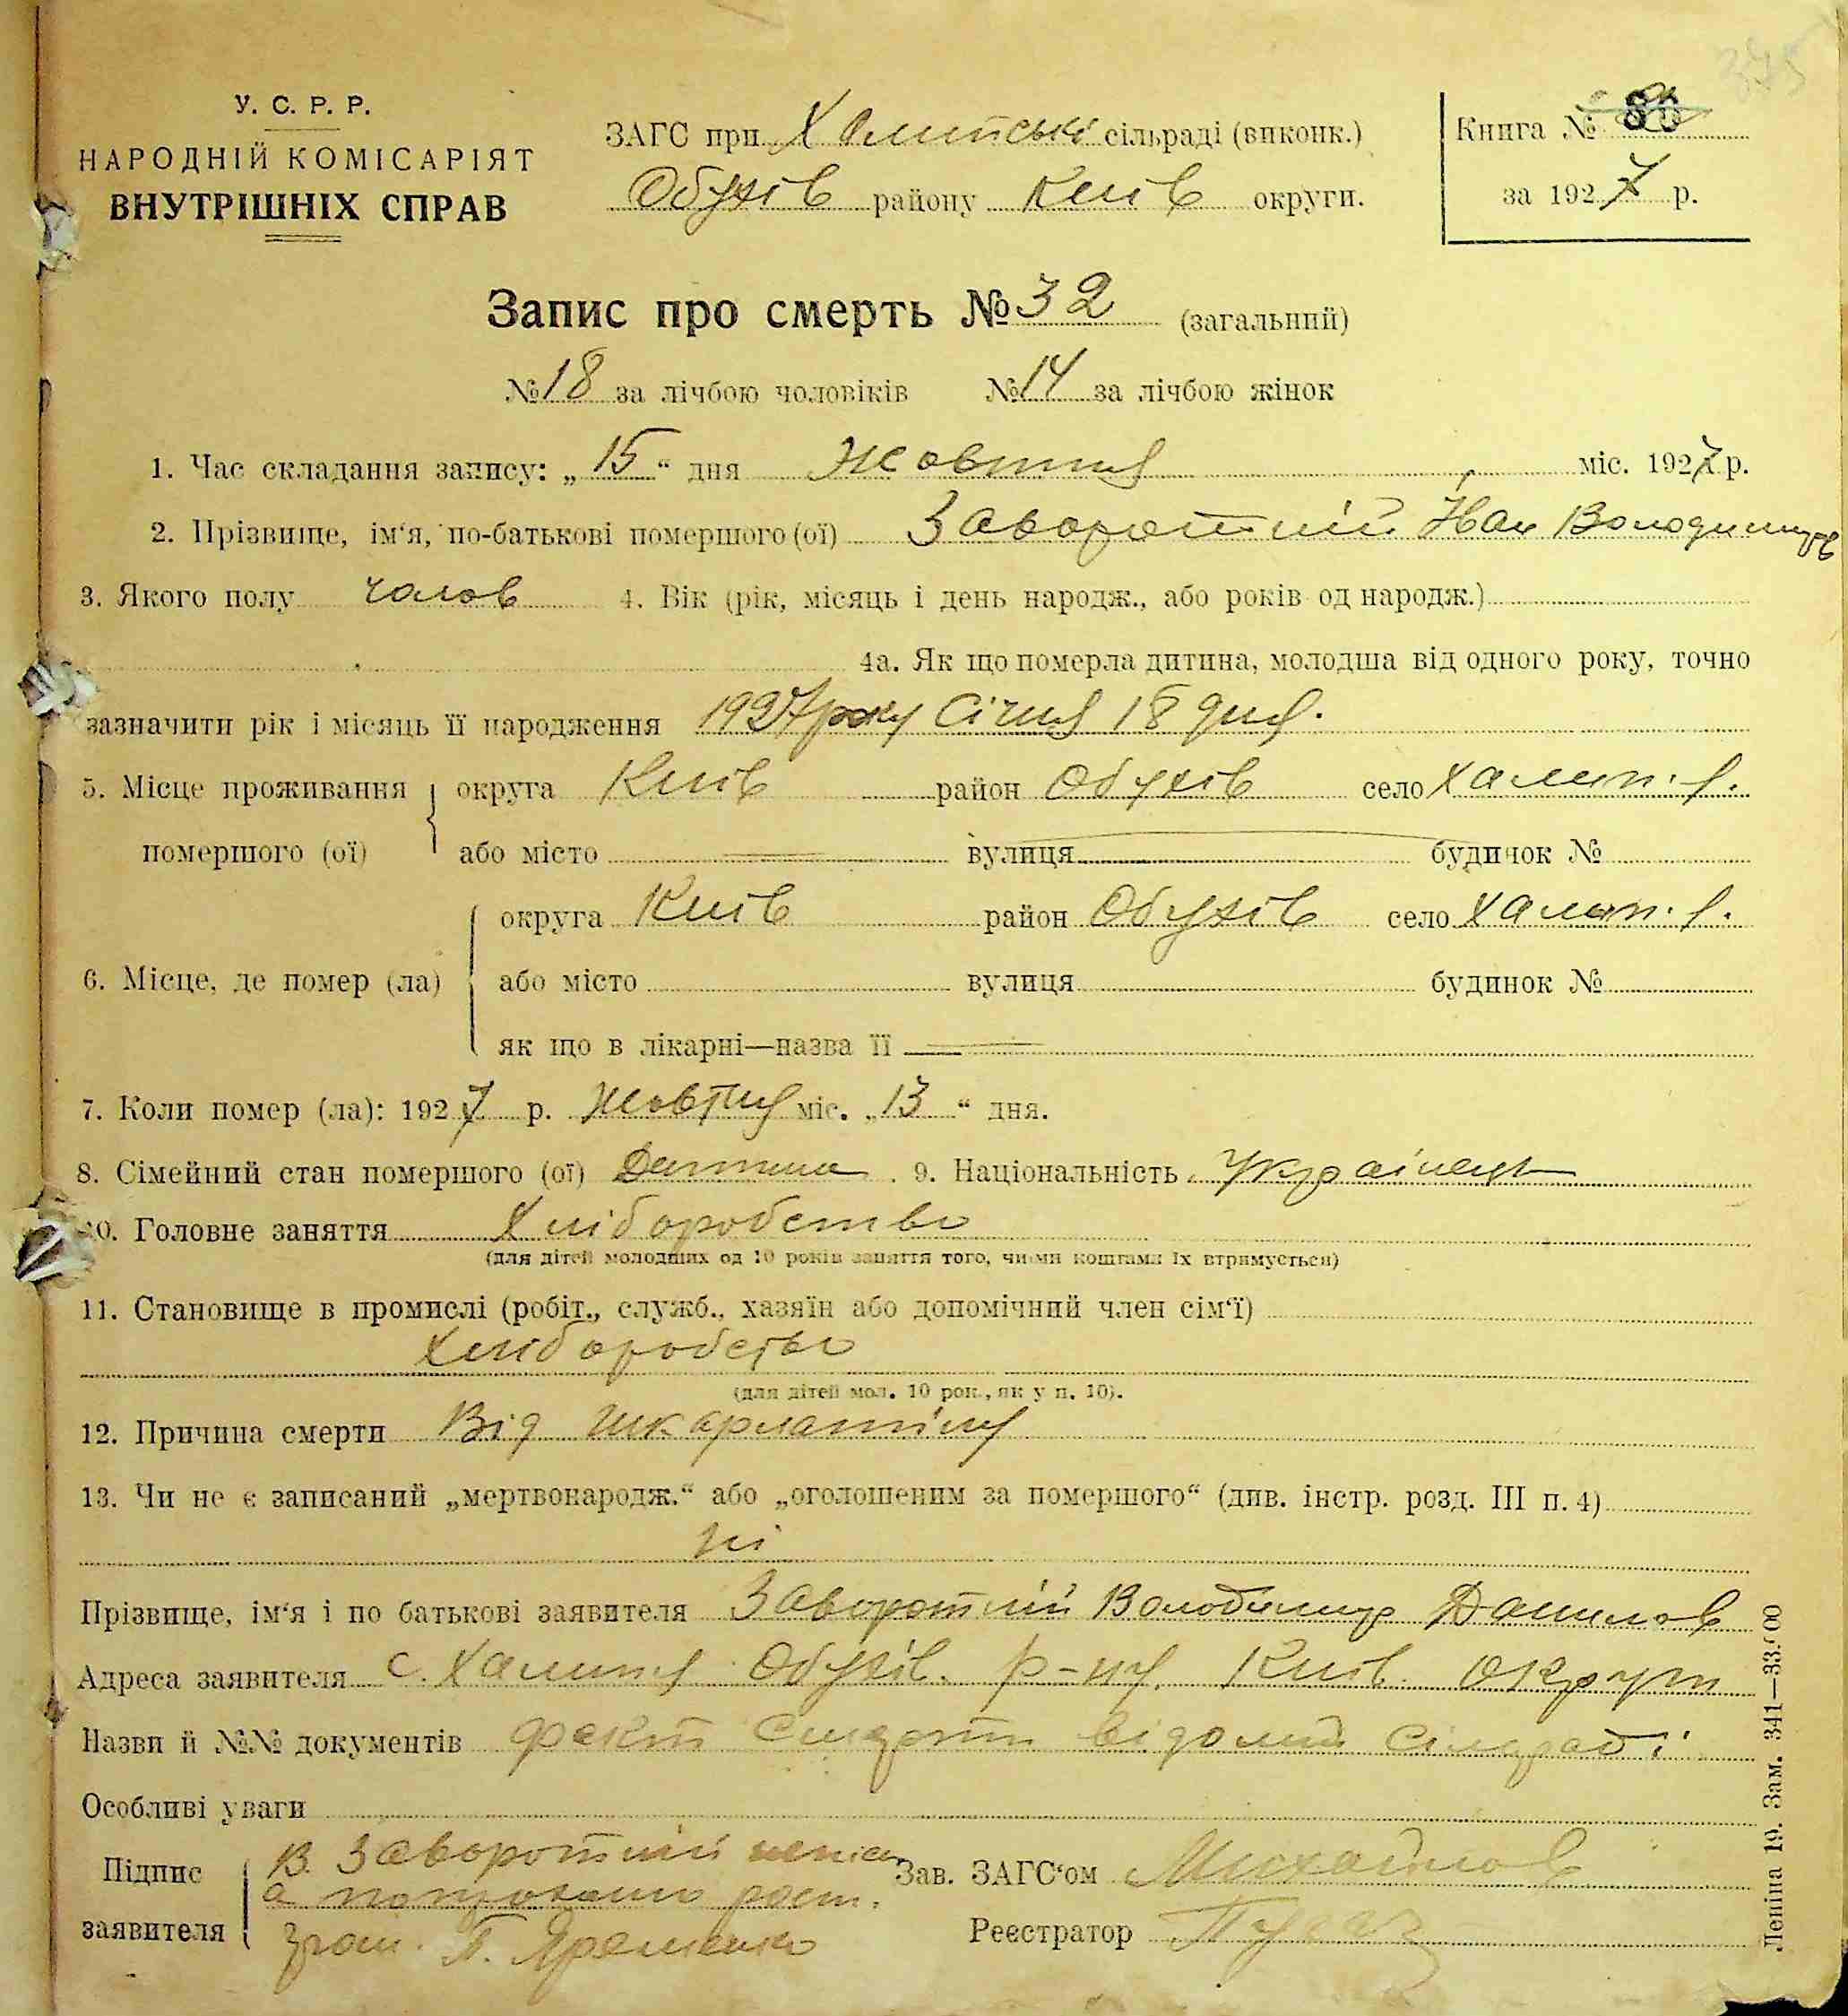 375
У. С. Р. Р.
НАРОДНІЙ КОМІСАРІЯТ
ВНУТРІШНІХ СПРАВ
ЗАГС при Халипські сільраді (виконк.)
Обухів району Київ округи.
Книга №
за 1927 р.
Запис про смерть № 32 (загальний)
№ 18 за лічбою чоловіків № 14 за лічбою жінок
1. Час складання запису: „15“ дня Жовтня міс. 1927 р.
2. Прізвище, ім‘я, по-батькові помершого (ої) Заворотній Йван Володимиров
3. Якого полу чолов 4. Вік (рік, місяць і день народж., або років од народж.)
4а. Як що померла дитина, молодша від одного року, точно
зазначити рік і місяць її народження 1927 року Січня 18 дня.
5. Місце проживання округа Київ район Обухів село Халип.'я.
помершого (ої) або місто вулиця будинок №
округа Київ район Обухів село Халип.'я.
6. Місце, де помер (ла) або місто вулиця будинок №
як що в лікарні—назва її
7. Коли помер (ла): 1927 р. Жовтня міс. „13“ дня.
8. Сімейний стан помершого (ої) Дитина. 9. Національність Українець
10. Головне заняття Хліборобство
(для дітей молодших од 10 років заняття того, чиїми коштами їх втримується)
11. Становище в промислі (робіт., служб., хазяїн або допомічний член сім‘ї)
Хліборобство
(для дітей мол. 10 рок., як у п. 10).
12. Причина смерти Від шкарлатіни
13. Чи не є записаний „мертвонародж.“ або „оголошеним за помершого“ (див. інстр. розд. III п. 4)
Ні
Прізвище, ім‘я і по батькові заявителя Заворотній Володимир Данилов
Адреса заявителя с. Халипя Обухів. р-ну. Київ. округи
Назви й №№ документів факт смерти відомий сільраді
Особливі уваги
Підпис заявителя В. Заворотний непісм.
а по
П. Яременко
Зав. ЗАГС‘ом Михайлов
Реєстратор
Леніна 19. Зам. 341—33.000